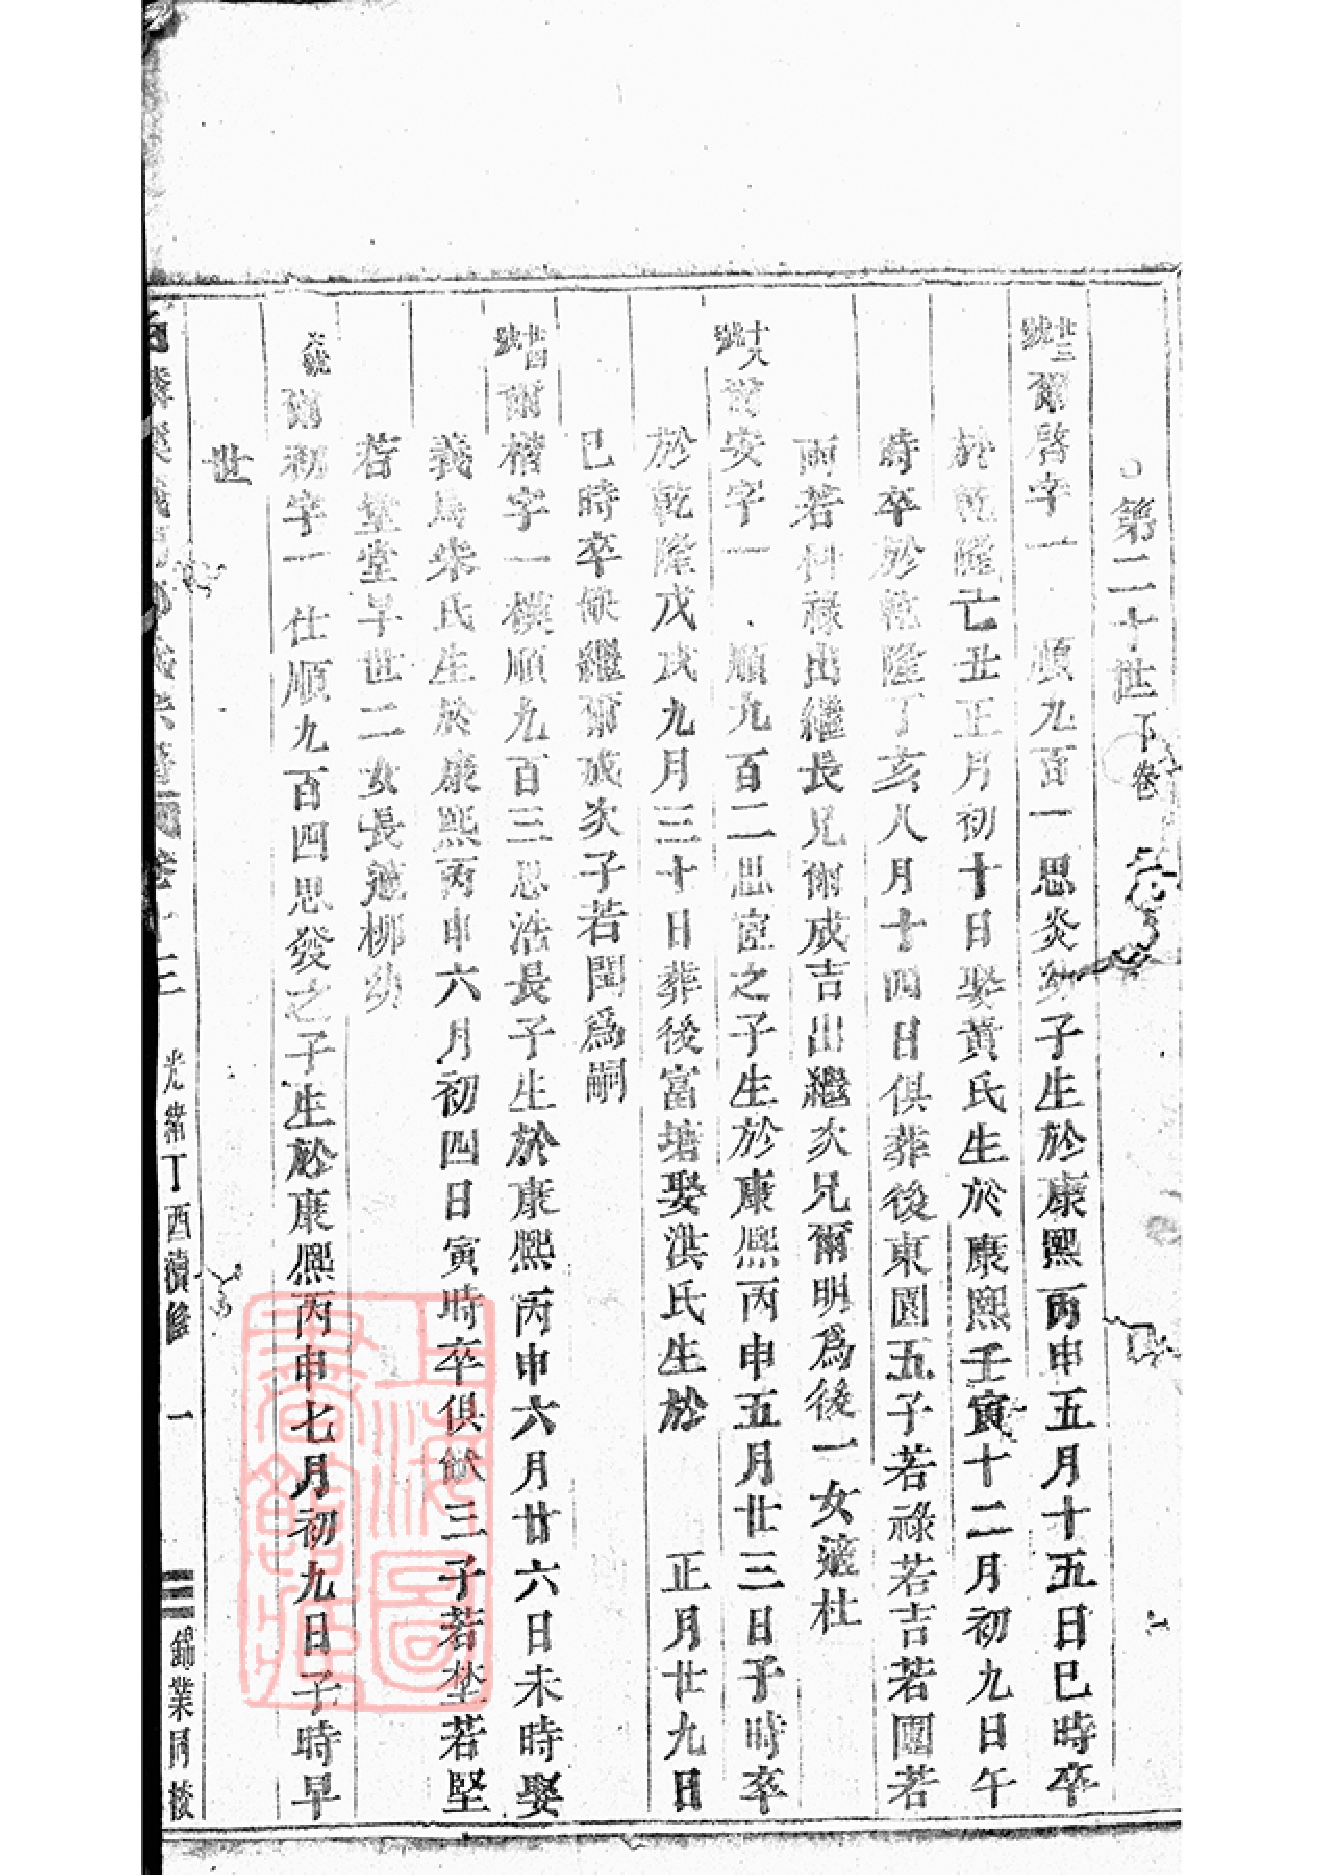 ○第二十世下卷
廿三號爾啓字一 順九百一思炎幼子生於康熙丙申五月十五日巳時卒
於乾隆丁丑正月初十日娶黃氏生於康熙壬寅十二月初九日午
時卒於乾隆丁亥八月十四日俱葬後東園五子若祿若吉若圍若
雨若 祿出繼長兄爾成吉出繼次兄爾明爲後一女適杜
十八號爾安字一 順九百二思 之子生於康熙丙申五月廿三日子時卒
於乾隆戊戌九月三十日葬後富塘娶洪氏生於 正月廿九日
巳時卒缺繼爾成次子若閏爲嗣
廿四號爾楷字一樸順九百三思浩長子生於康熙丙申六月廿六日未時娶
義烏朱氏生於康熙丙申六月初四日寅時卒俱缺三子若坐若堅
若堂堂早世二女長適柳幼
爾初字一仕順九百四思發之子生於康熙丙申七月初九日子時早
世
光緒丁酉續修 一 錦業同梓
上海圖書館藏